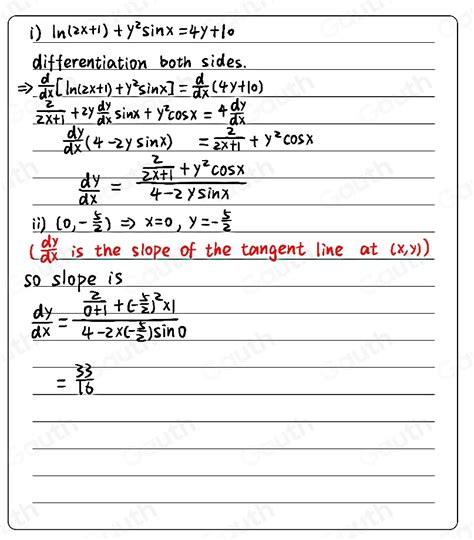 i) ln(2x+1) + y²sinx = 4y+10
differentiation both sides.
⇒ d/dx[ln(2x+1) + y²sinx] = d/dx(4y+10)
2/(2x+1) + 2y dy/dx sinx + y²cosx = 4 dy/dx
dy/dx(4-2y sinx) = 2/(2x+1) + y²cosx
dy/dx = (2/(2x+1) + y²cosx)/(4-2ysinx)
ii) (0, -5/2) ⇒ x=0, y=-5/2
(dy/dx is the slope of the tangent line at (x,y))
so slope is
dy/dx = (2/(0+1) + (-5/2)²×1)/(4-2×(-5/2)sin0)
= 33/16